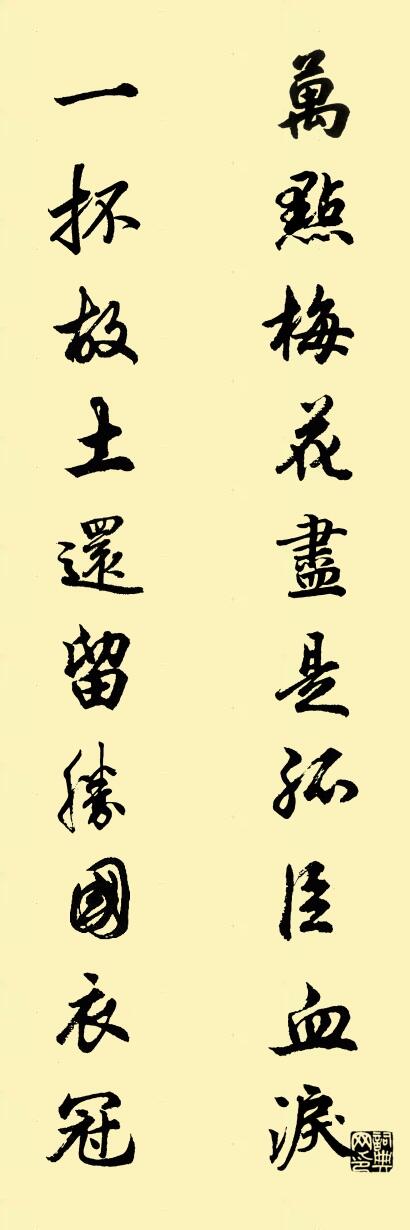 萬點梅花盡是孤臣血淚
一抔故土還留勝國衣冠
詞典网印